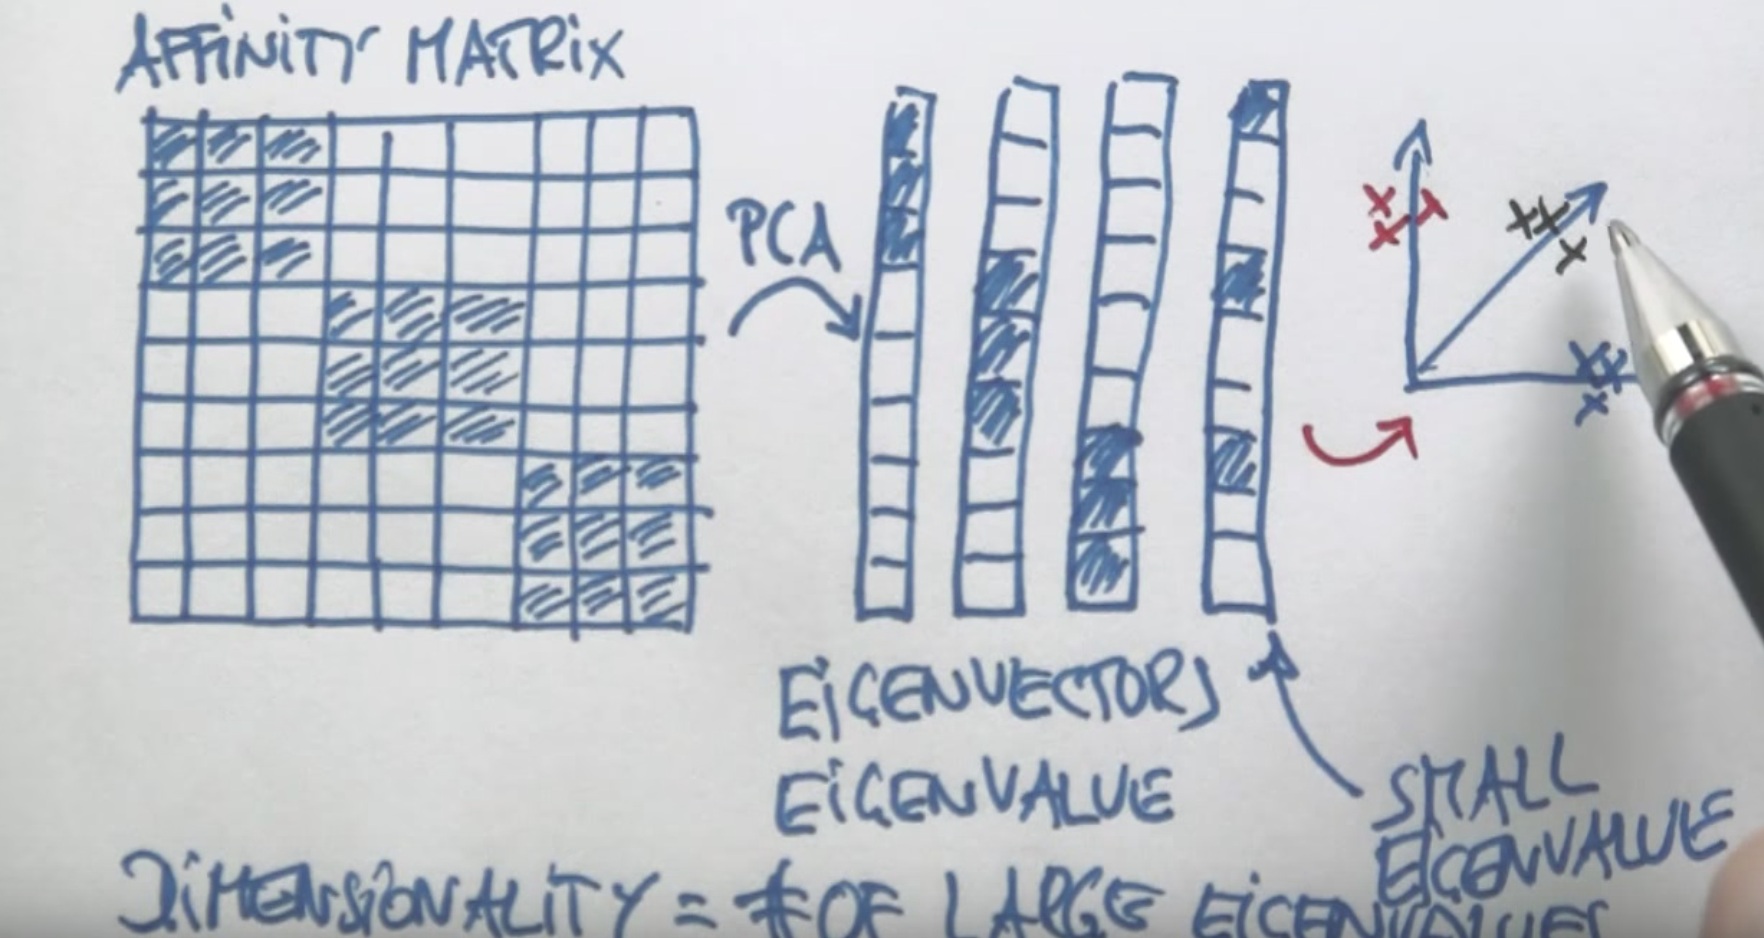 AFFiNiTY MATRiX
PCA
EiGENVECTORS
EiGENVALUE
SMALL
EiGENVALUE
DiMENSiONALiTY = # OF LARGE EiGENVALUES